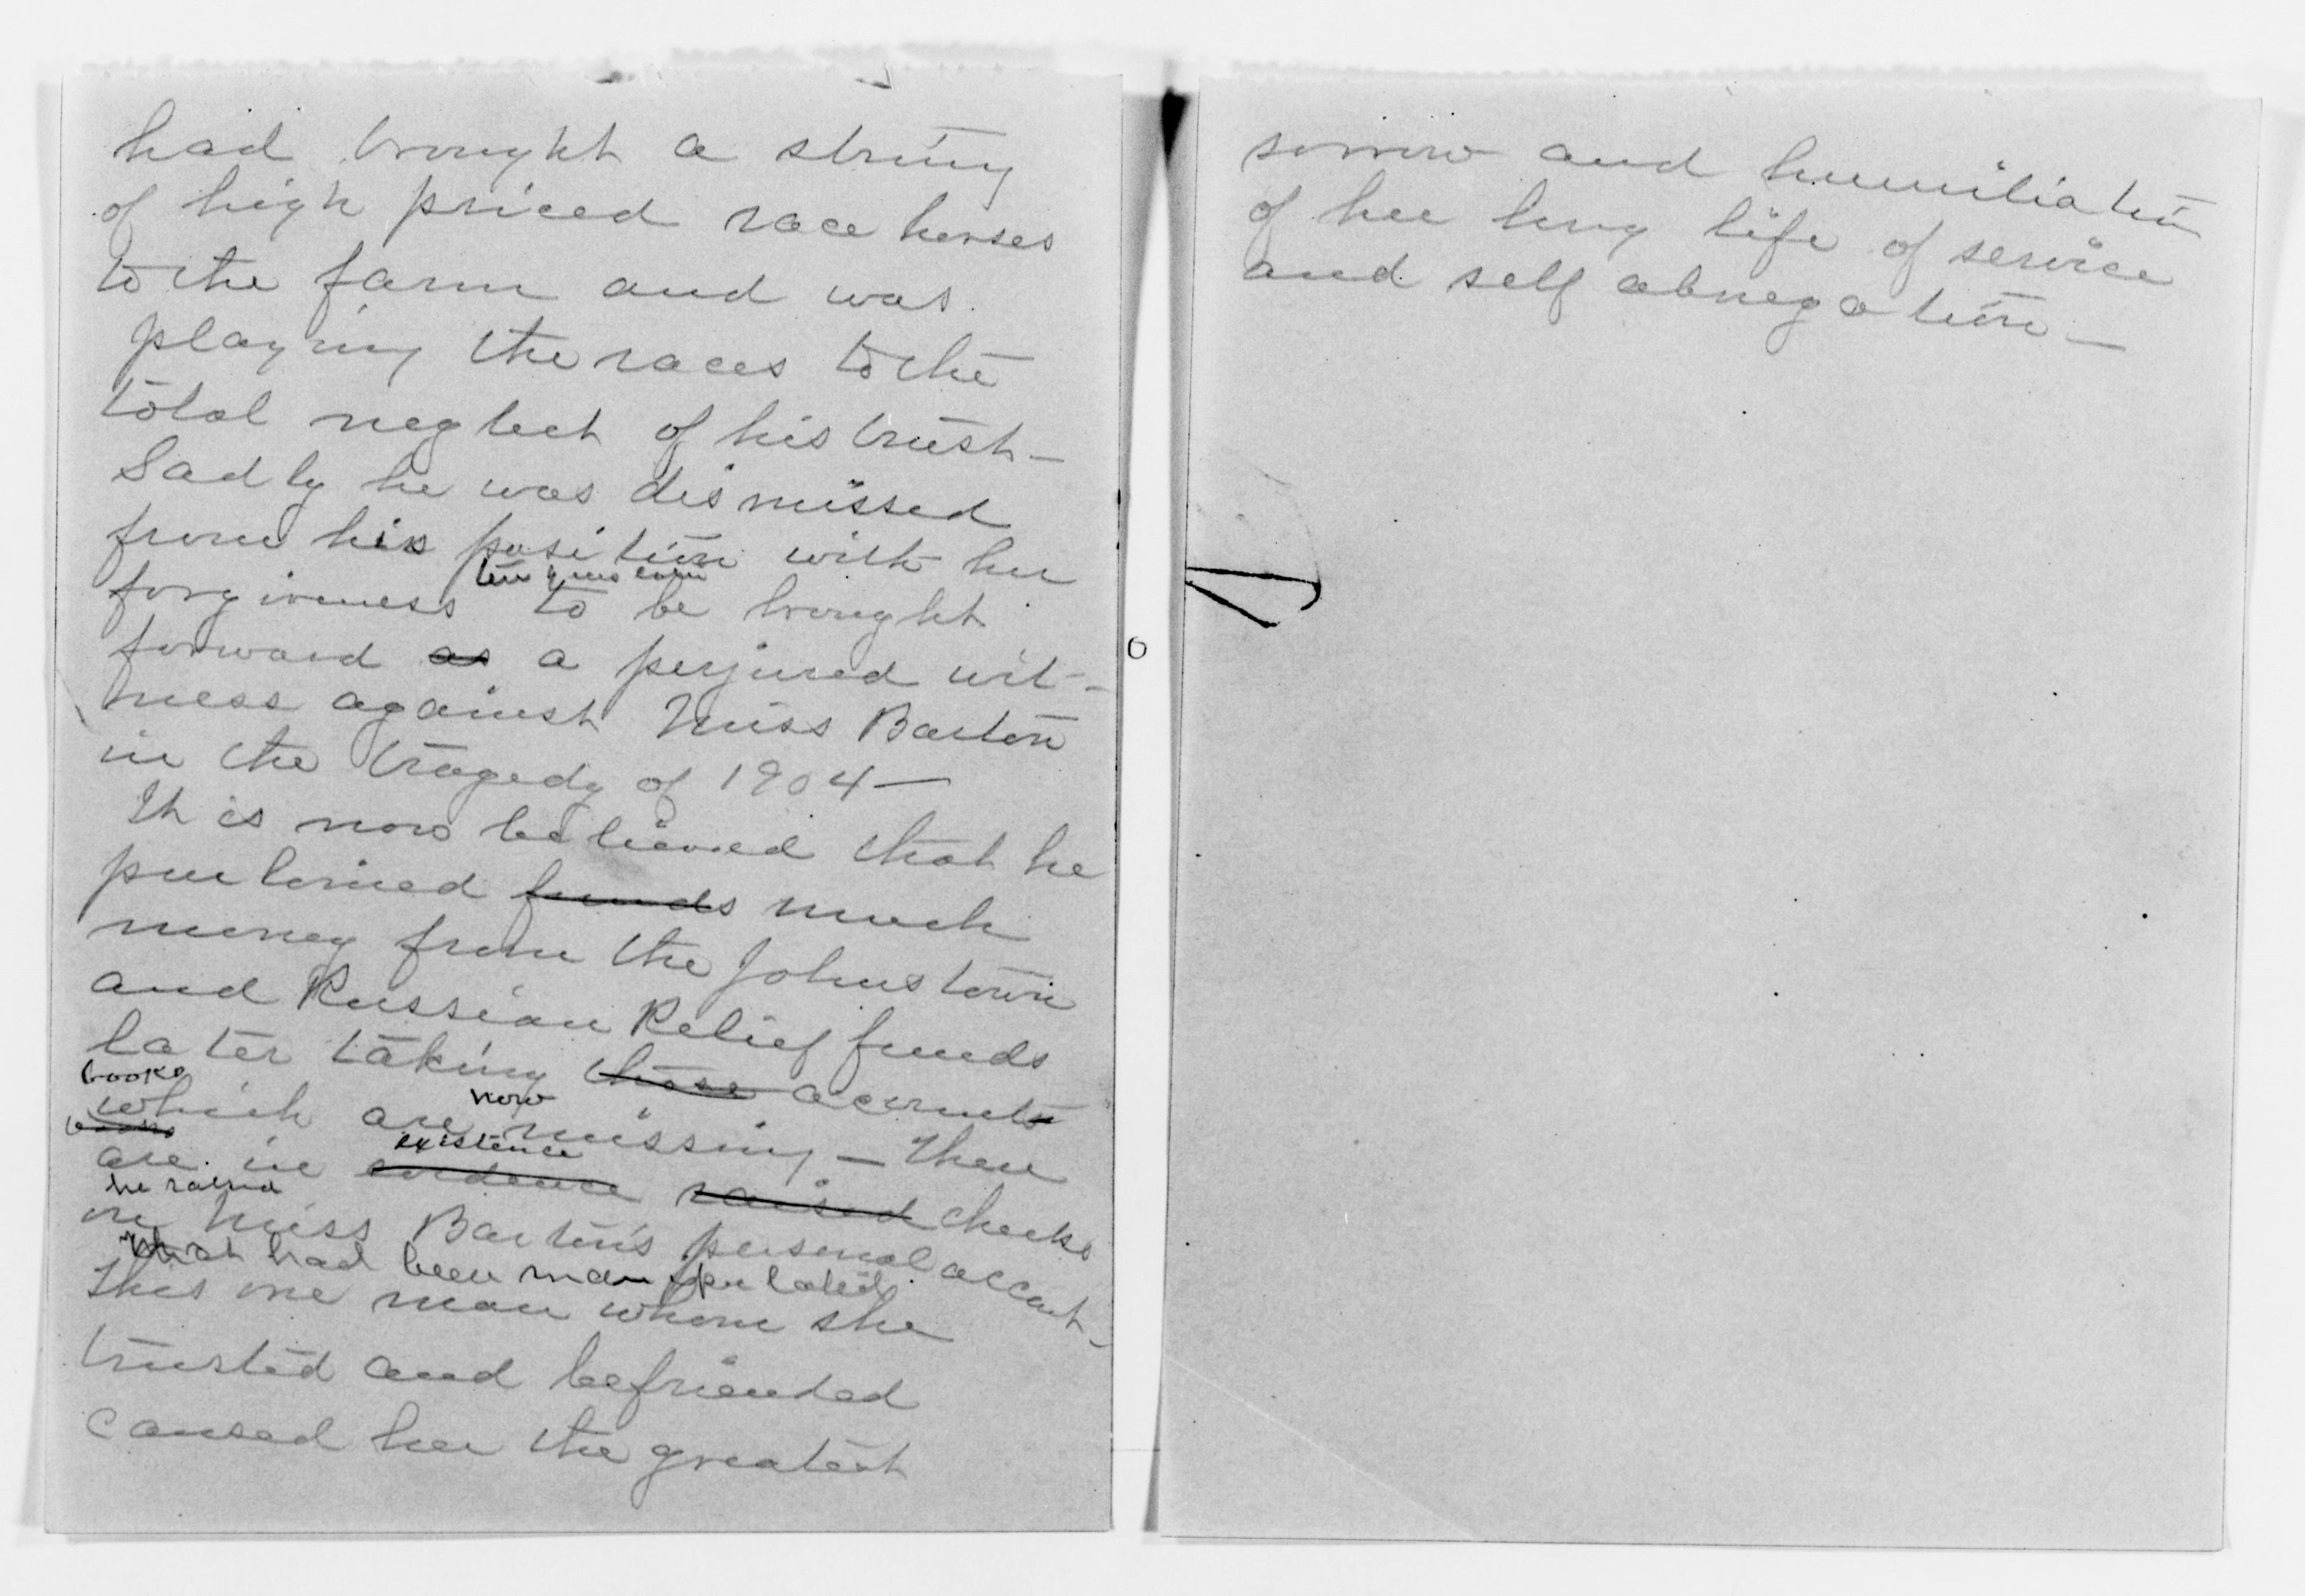 had brought a string
of high priced race horses
to the farm and was
playing the races to the
total neglect of his trust —
Sadly he was dismissed
from his position with her
ten years later
forgiveness to be brought
forward as a perjured wit-
ness against Miss Barton
in the tragedy of 1904 —
It is now believed that he
purloined funds much
money from the Johnstown
and Russian Relief funds
later taking those accounts
books
now
which are missing — There
books
existence
are in evidence raised checks
he raised
on Miss Barton's personal account —
that had been manipulated
This one man whom she
trusted and befriended
caused her the greatest
sorrow and humiliation
of her long life of service
and self abnegation —